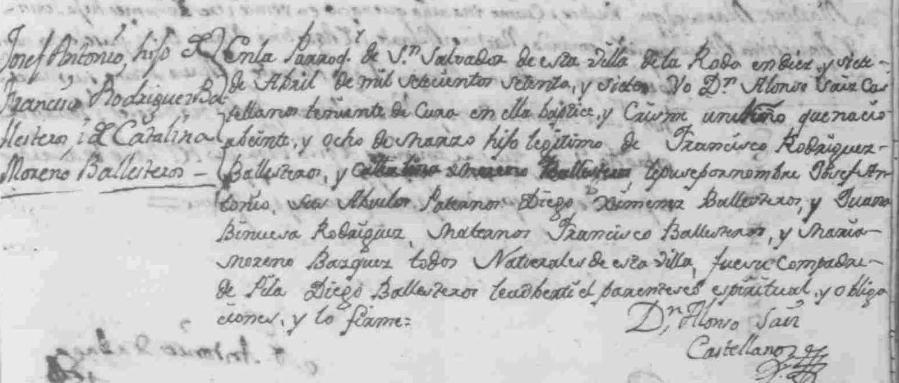 Josef Antonio, hijo de
Francisco Rodriguez Ba
llesteros, i de Catalina
Moreno Ballesteros =
En la Parroq.l de S.n Salvador de esta Villa de la Roda en diez, y siete
de Abril de mil setecientos setenta, y siete Yo D.n Alonso Saiz Cas
tellanos teniente de Cura en ella baptice, y Crisme un niño que nacio
a beinte, y ocho de Marzo hijo legitimo de Francisco Rodriguez
Ballesteros, y Catalina Moreno Ballesteros, le puse por nombre Josef An
tonio, sus Abuelos Paternos Diego Ximenez Ballesteros, y Juana
Rodriguez, Maternos Francisco Ballesteros, y Maria
Moreno Bazquez todos Naturales de esta Villa, fue su Compadre
de Pila Diego Ballesteros le adberti el parentesco espiritual, y obliga
ciones, y lo firme=
D.n Alonso Saiz
Castellanos